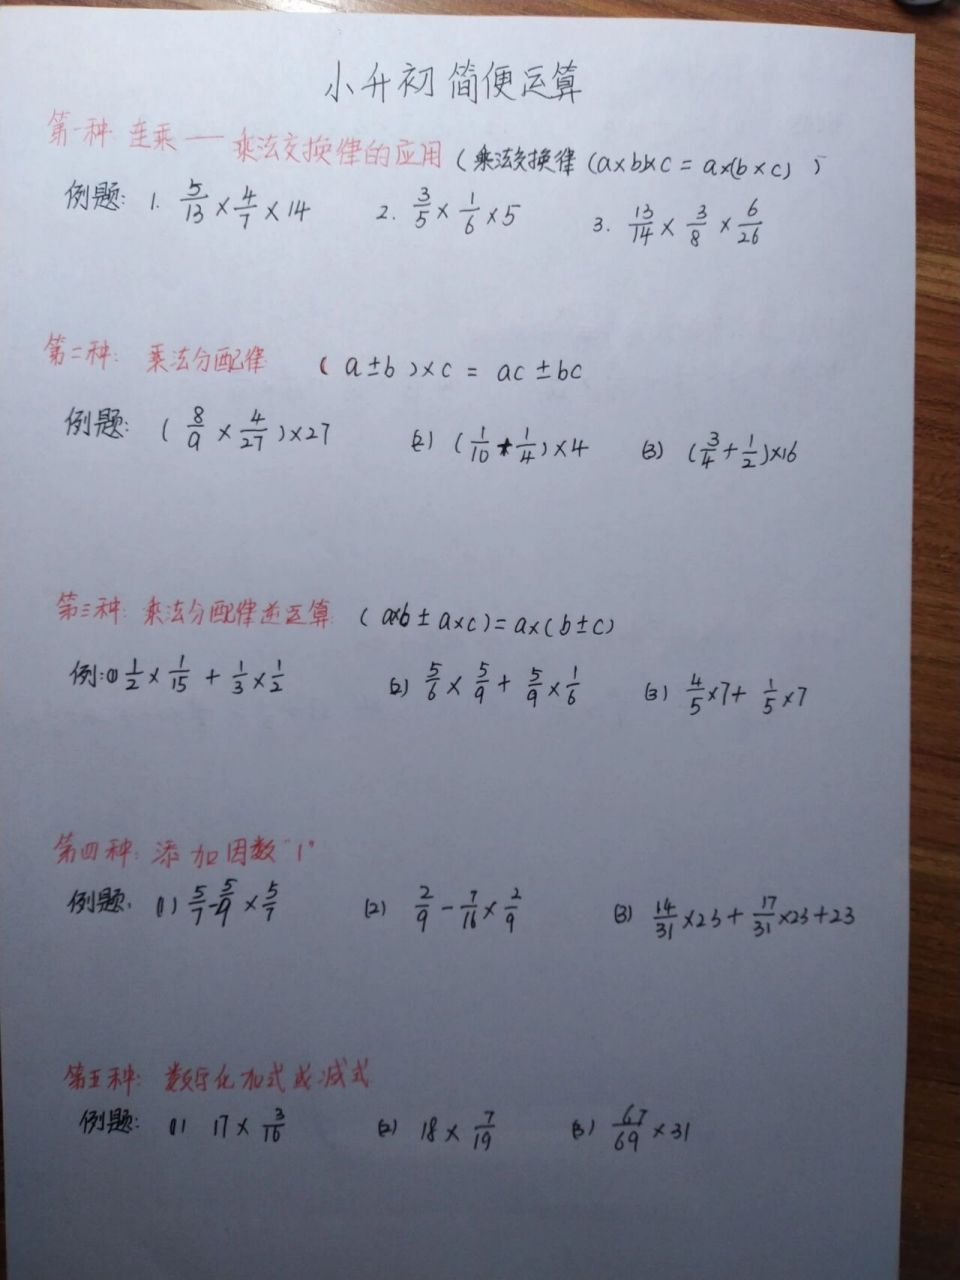 小升初 简便运算
第一种: 连乘——乘法交换律的应用 (乘法交换律 (a×b)×c = a×(b×c) )
例题: 1. 5/13 × 4/7 × 14 2. 3/5 × 1/6 × 5 3. 13/14 × 3/8 × 6/26
第二种: 乘法分配律 ( a±b )×c = ac±bc
例题: ( 8/9 × 4/27 )×27 (2) ( 1/10 + 1/4 )×4 (3) ( 3/4 + 1/2 )×16
第三种: 乘法分配律逆运算 ( a×b ± a×c ) = a×( b±c )
例:(1) 1/2 × 1/15 + 1/3 × 1/2 (2) 5/6 × 5/9 + 5/9 × 1/6 (3) 4/5 ×7+ 1/5 ×7
第四种: 添加因数"1"
例题: (1) 5/7 - 5/9 × 5/7 (2) 2/9 - 7/16 × 2/9 (3) 14/31 ×23 + 17/31 ×23+23
第五种: 数字化加式或减式
例题: (1) 17 × 3/16 (2) 18 × 7/19 (3) 67/69 × 31